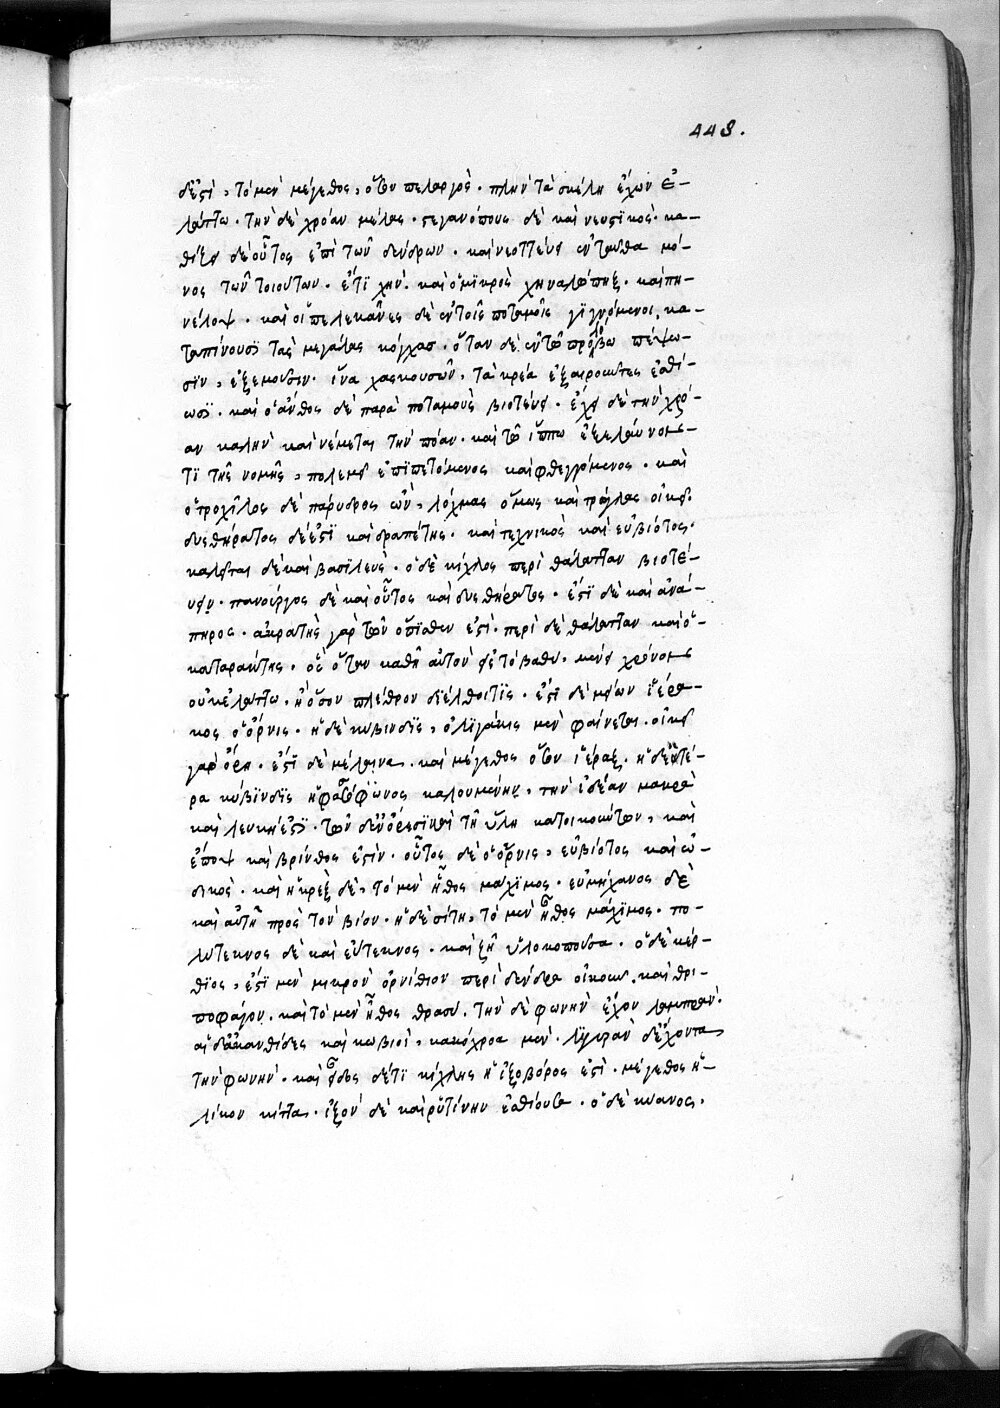 443.
δέ ἐστι, τὸ μὲν μέγεθος, οἷον πελαργὸς. πλὴν τὰ σκέλη ἔχων ἐ-
λάττω. τὴν δὲ χρόαν μέλας. στεγανόπους δὲ καὶ νευστικὸς. κα-
θίζει δὲ οὗτος ἐπὶ τῶν δένδρων. καὶ νεοττεύει ἐνταῦθα μό-
νος τῶν τοιούτων. ἔτι χήν. καὶ ὁ μικρὸς χηναλώπηξ. καὶ πη-
νέλοψ. καὶ οἱ πελεκᾶνες δὲ ἐν τοῖς ποταμοῖς γιγνόμενοι, κα-
ταπίνουσι τὰς μεγάλας κόγχας. ὅταν δὲ ἐν τῶ προλόβω πέψω-
σιν, ἐξεμοῦσιν. ἵνα χασκουσῶν, τὰ κρέα ἐξαιροῦντες ἐσθί-
ωσι. καὶ ὁ ἄνθος δὲ παρὰ ποταμοὺς βιοτεύει. ἔχει δὲ τὴν χρό-
αν καλὴν καὶ νέμεται τὴν πόαν. καὶ τῶ ἵππω ἐξελαύνον-
τι τῆς νομῆς, πολεμεῖ ἐπιπετόμενος καὶ φθεγγόμενος. καὶ
ὁ τροχίλος δὲ πάρυδρος ὢν, λόχμας ὅμως καὶ τρώγλας οἰκεῖ.
δυσθήρατος δέ ἐστι καὶ δραπέτης. καὶ τεχνικὸς καὶ εὐβίοτος.
καλεῖται δὲ καὶ βασιλεὺς. ὁ δὲ κίχλος περὶ θάλατταν βιοτέ-
υει. πανοῦργος δὲ καὶ οὗτος καὶ δυσθήρατος. ἔστι δὲ καὶ ἀνά-
πηρος. ἀκρατὴς γὰρ τῶν ὄπισθεν ἐστὶ. περὶ δὲ θάλατταν καὶ ὁ
καταράκτης. ὃς ὅταν καθῆ αὐτὸν εἰς τὸ βαθύ. μένει χρόνον
οὐκ ἐλάττω. ἢ ὅσον πλέθρον διέλθοι τις. ἔστι δὲ μείων ἱέρα-
κος ὁ ὄρνις. ἡ δὲ κύβινδις, ὀλιγάκις μὲν φαίνεται. οἰκεῖ
γὰρ ὄρη. ἔστι δὲ μέλαινα. καὶ μέγεθος οἷον ἱέραξ. ἡ δὲ ἑτέ-
ρα κύβινδις καλουμένη, τὴν ἰδέαν μακρὰ
καὶ λευκή ἐστι. τῶν δ᾽ ἐν ὄρεσι καὶ τῆ ὕλη κατοικούντων, καὶ
ἔποψ καὶ βρίνθος ἐστίν. οὗτος δὲ ὁ ὄρνις, εὐβίοτος καὶ ὠ-
δικὸς. καὶ ἡ κρὲξ δὲ, τὸ μὲν ἦθος μάχιμος. εὐμήχανος δὲ
καὶ αὐτὴ πρὸς τὸν βίον. ἡ δὲ σίτη, τὸ μὲν ἦθος μάχιμος. πο-
λύτεκνος δὲ καὶ εὔτεκνος. καὶ ζῆ ὑλοκοποῦσα. ὁ δὲ κέρ-
θιος, ἔστι μὲν μικρὸν ὀρνίθιον περὶ δένδρα οἰκοῦν. καὶ θρι-
ποφάγον. καὶ τὸ μὲν ἦθος θρασύ. τὴν δὲ φωνὴν ἔχον λαμπράν.
αἱ δ᾽ ἀκανθίδες καὶ κωβιοὶ, κακόχροα μὲν. λιγυρὰν δ᾽ ἔχοντα
τὴν φωνήν. καὶ εἶδος δέ τι κίχλης ἡ ἰξοβόρος ἐστὶ. μέγεθος ἡ-
λίκον κίττα. ἰξὸν δὲ καὶ ῥυτίνην ἐσθίουσα. ὁ δὲ κύανος.